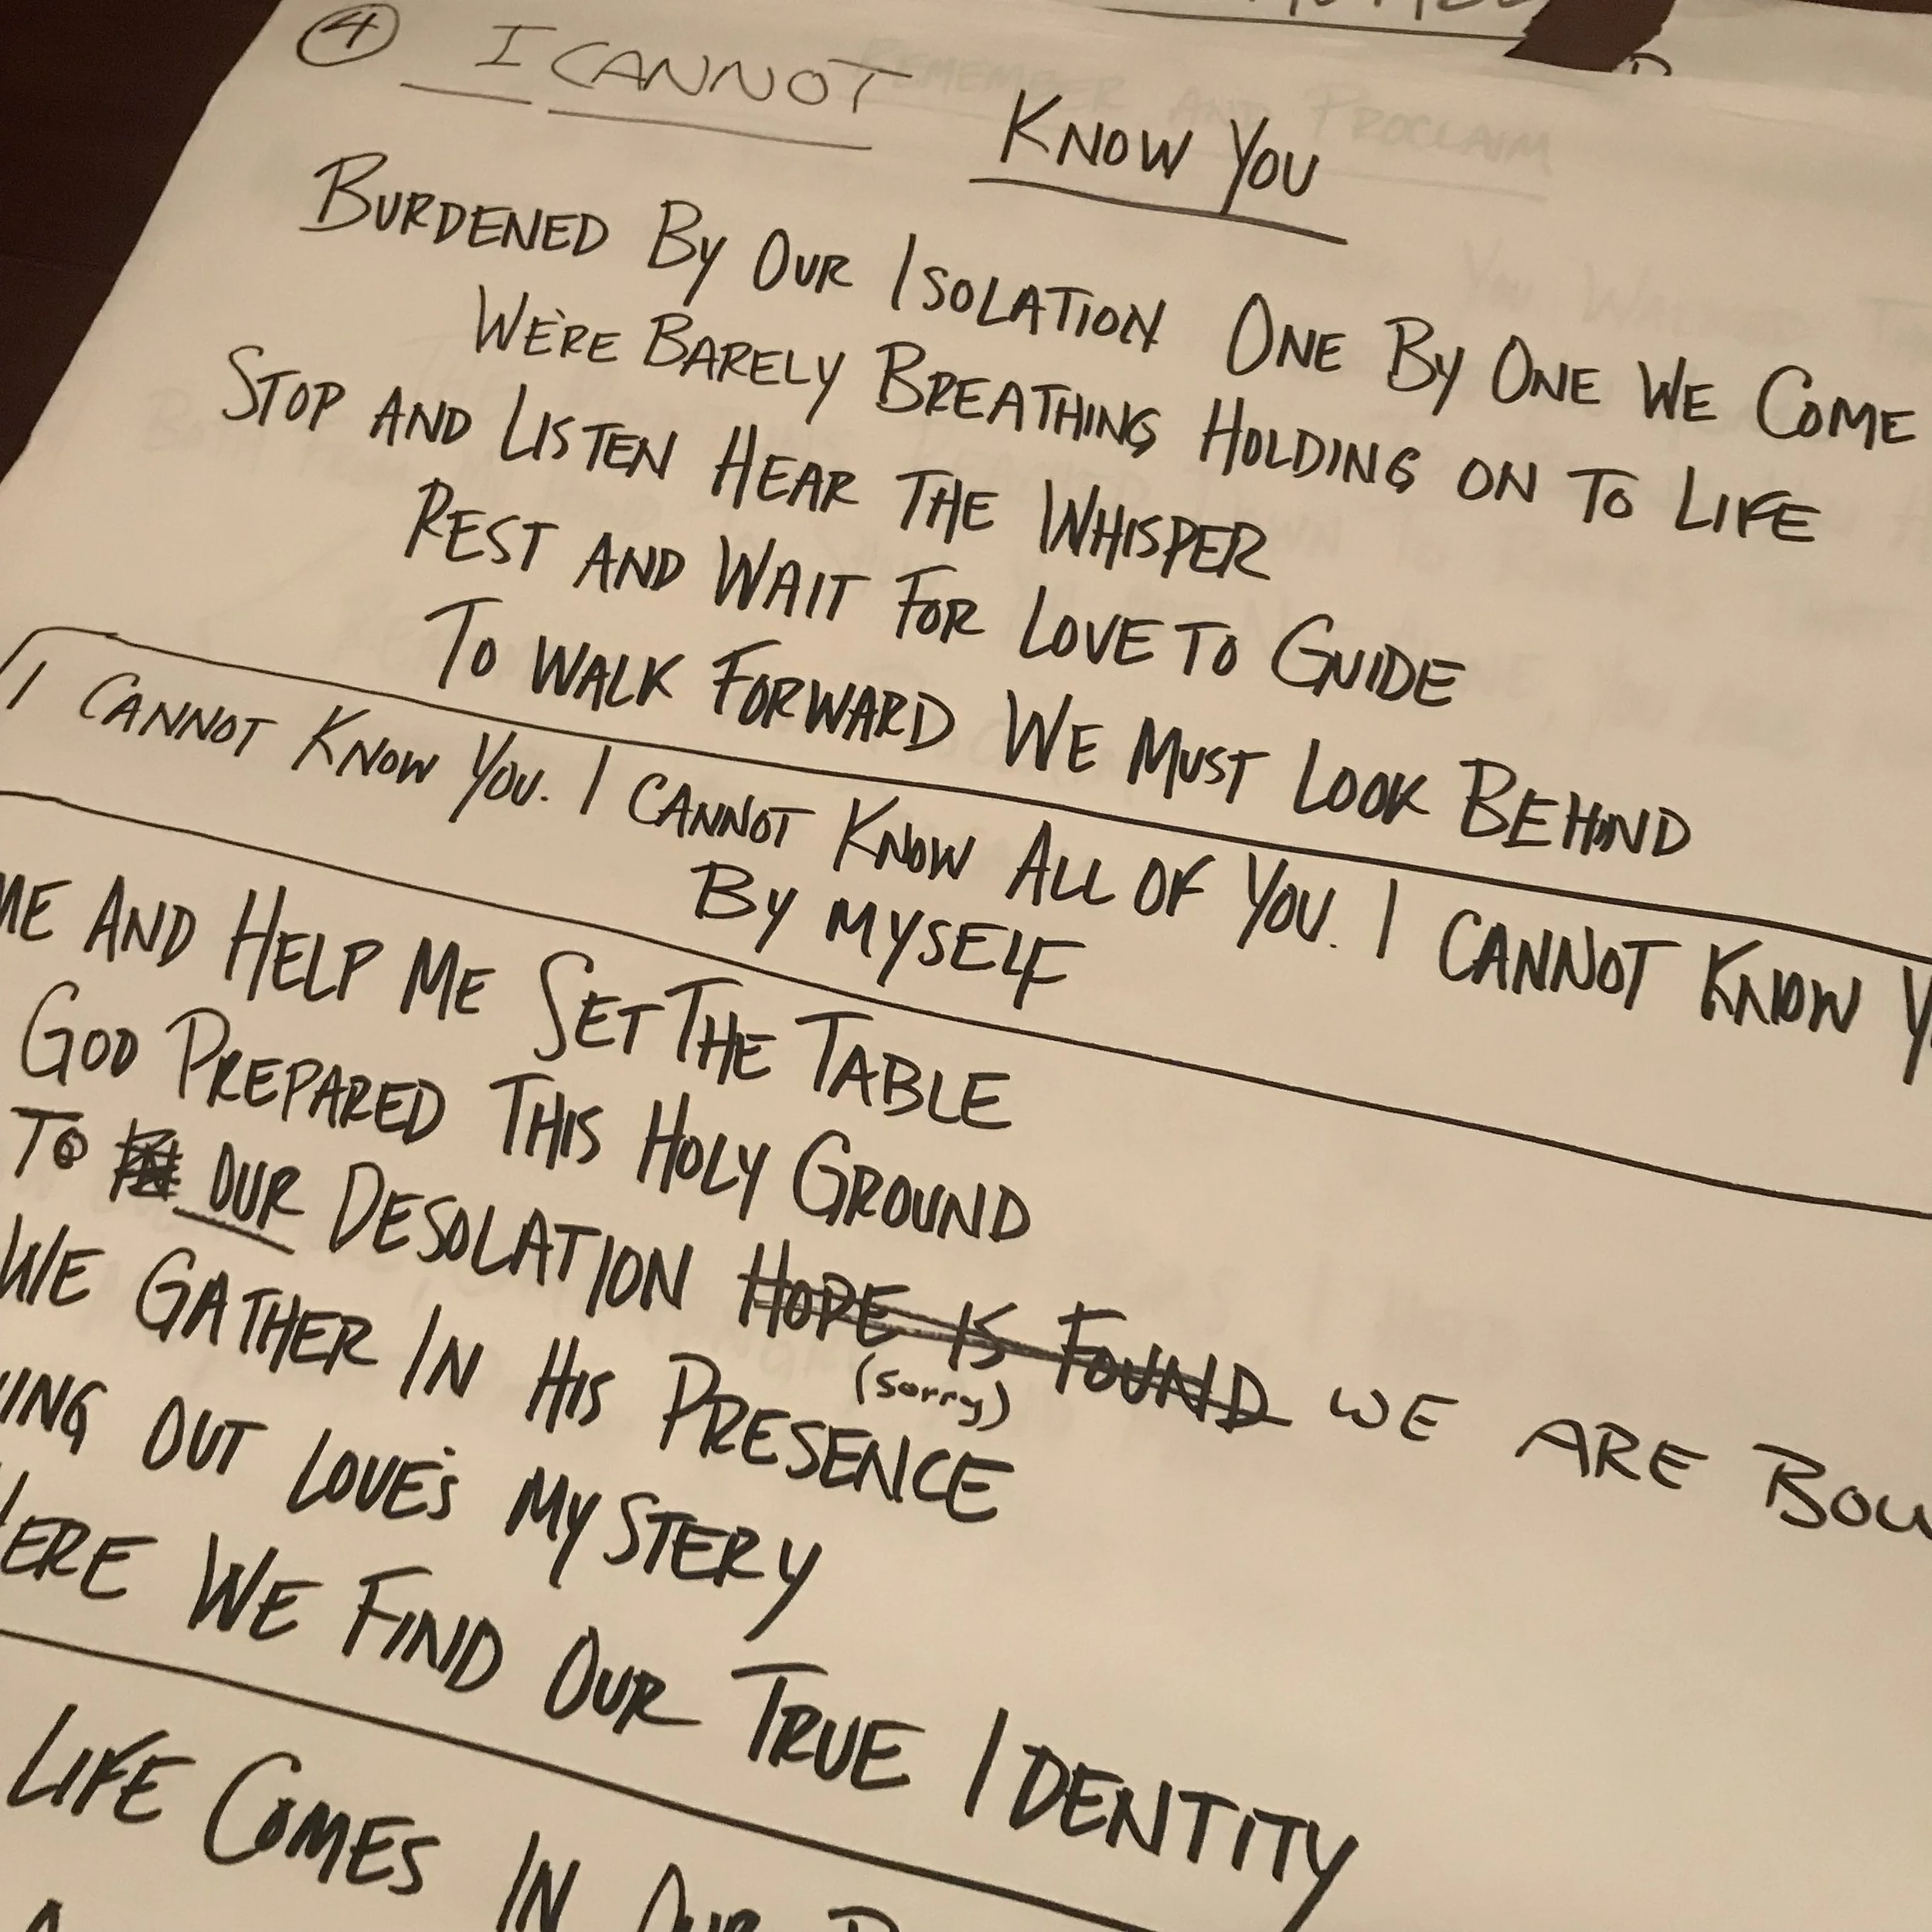 ④ I CANNOT KNOW YOU
BURDENED BY OUR ISOLATION ONE BY ONE WE COME
WE'RE BARELY BREATHING HOLDING ON TO LIFE
STOP AND LISTEN HEAR THE WHISPER
REST AND WAIT FOR LOVE TO GUIDE
TO WALK FORWARD WE MUST LOOK BEHIND
I CANNOT KNOW YOU. I CANNOT KNOW ALL OF YOU. I CANNOT KNOW
BY MYSELF
ME AND HELP ME SET THE TABLE
GOD PREPARED THIS HOLY GROUND
TO OUR DESOLATION HOPE IS FOUND WE ARE BOU
(sorry)
WE GATHER IN HIS PRESENCE
ING OUT LOVE'S MYSTERY
ERE WE FIND OUR TRUE IDENTITY
LIFE COMES IN OUR
REMEMBER AND PROCLAIM